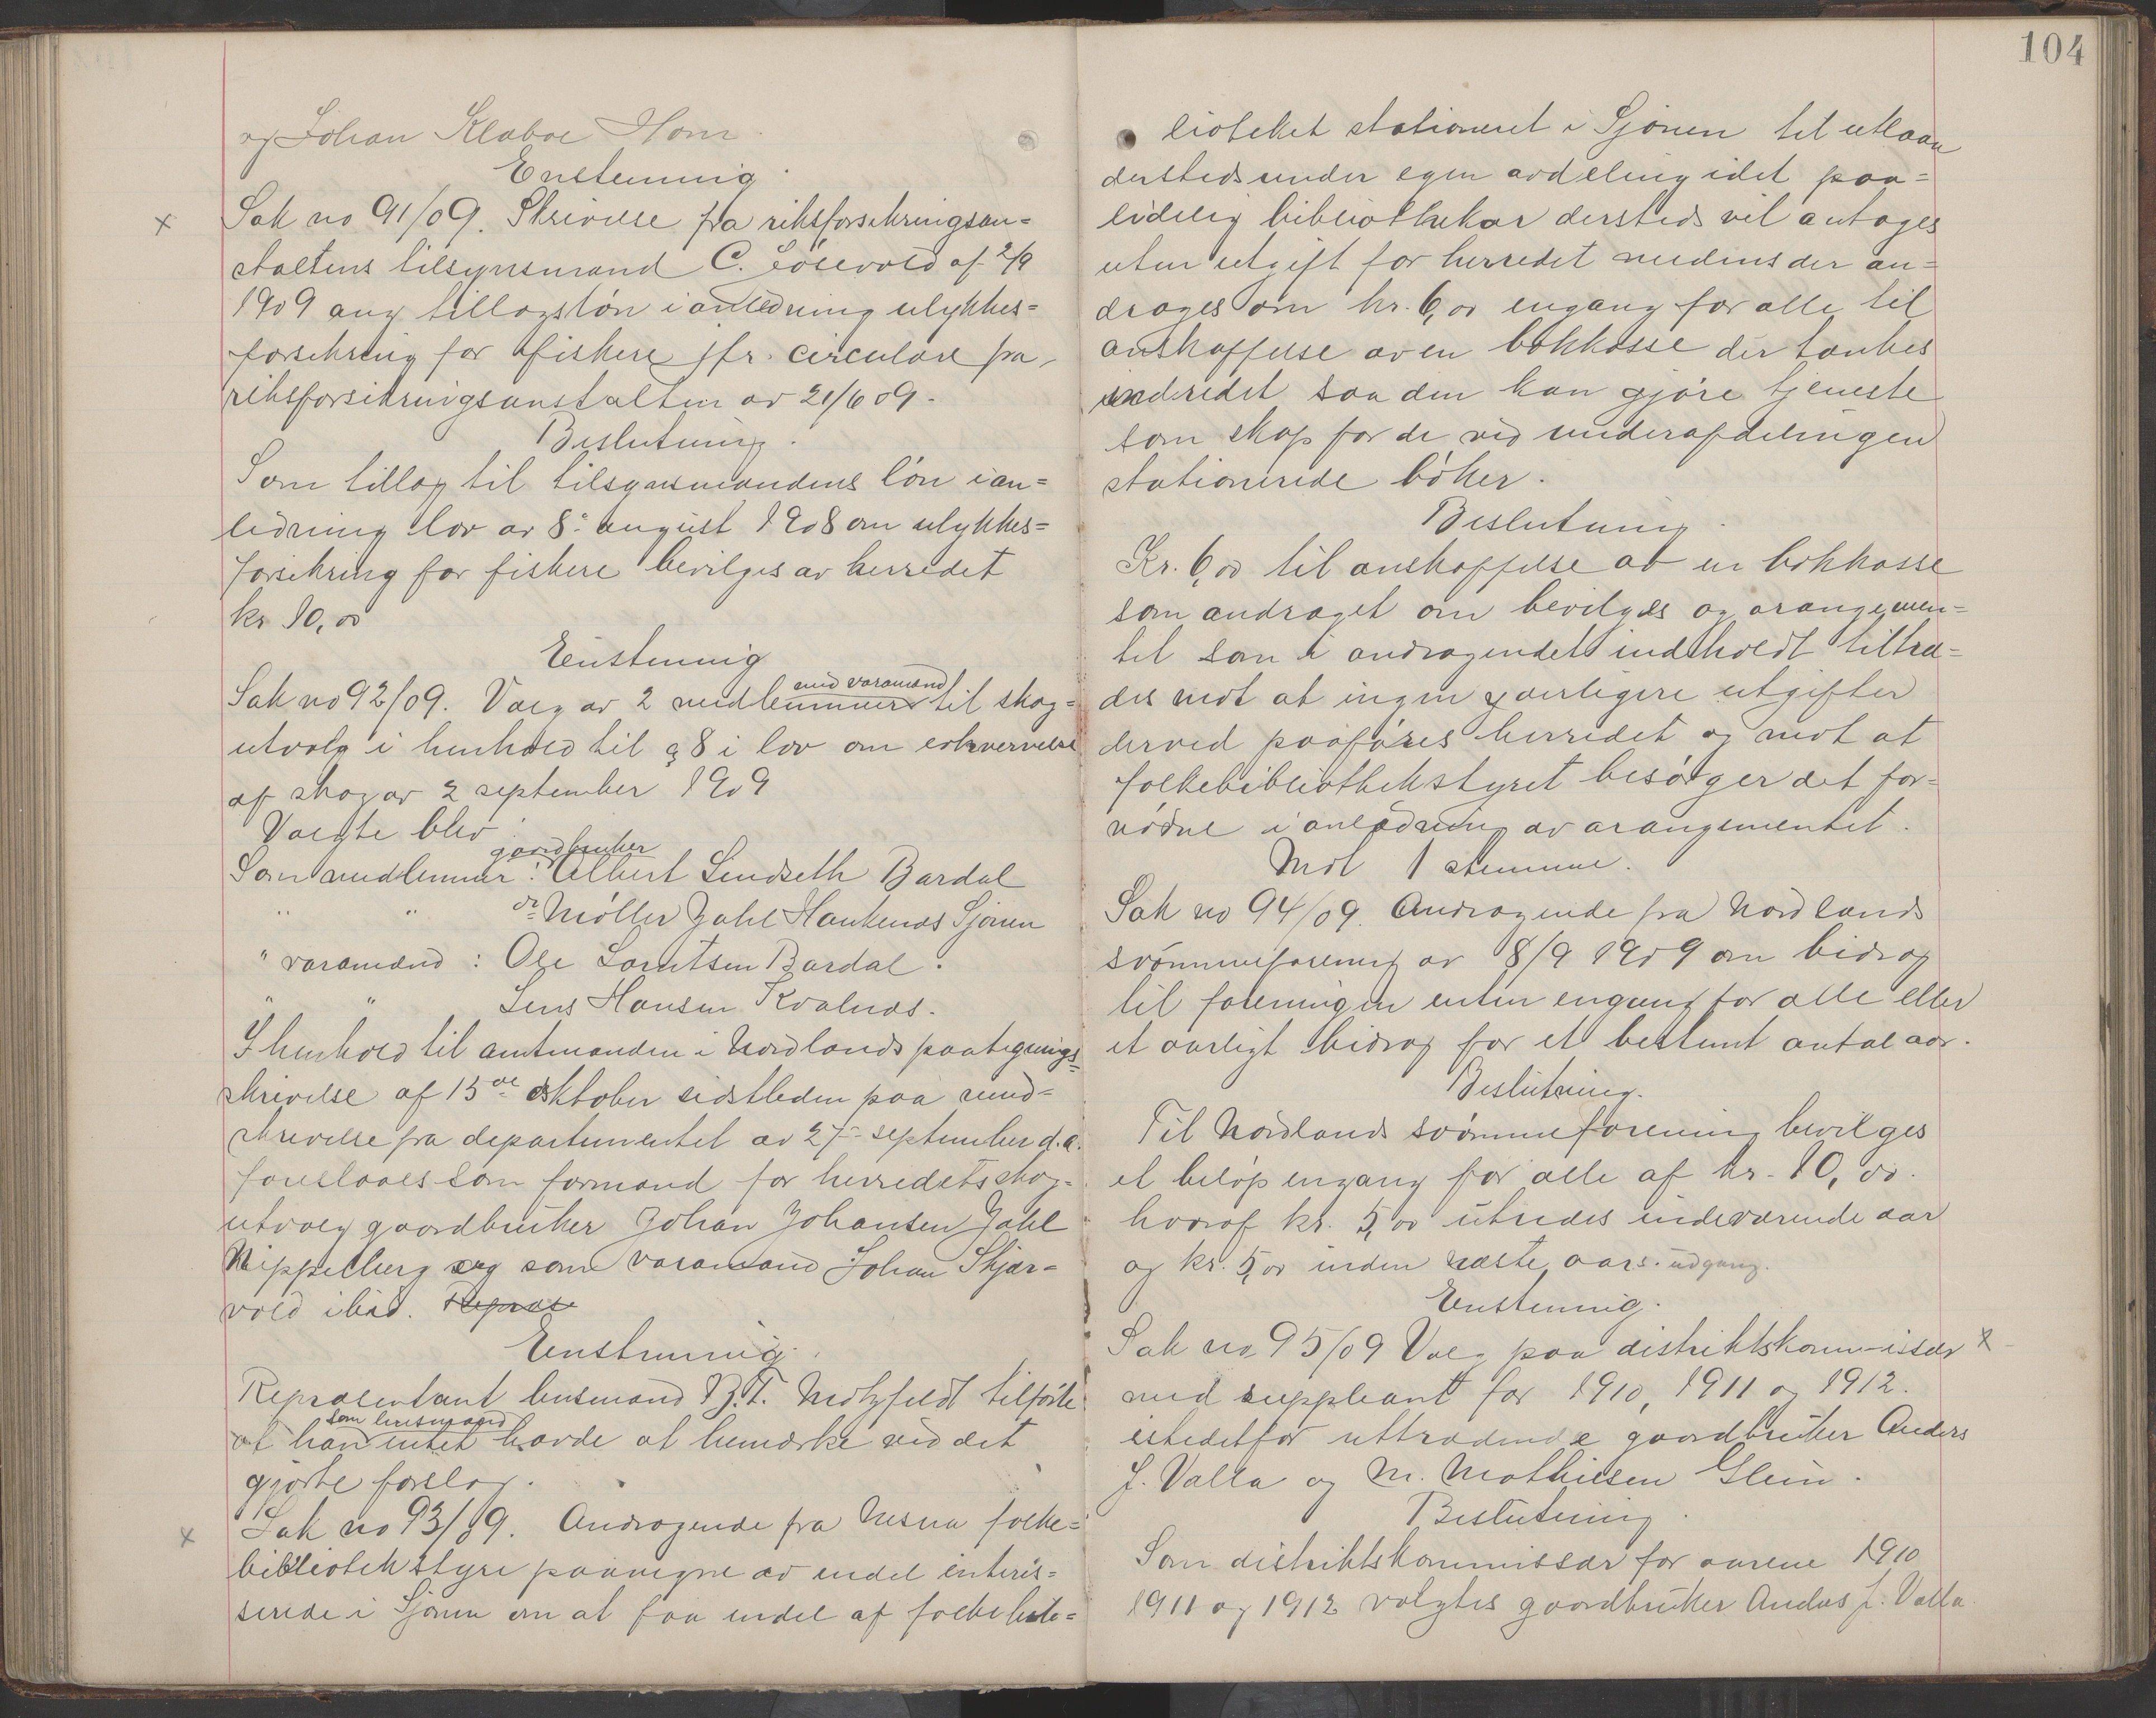 og Johan Klaboe Horn.
Enstemmig.
x Sak no 91/09. Skrivelse fra riksforsikringsan=
staltens tilsynsmand C. Løsevold af 2/9
1909 ang tillægsløn i anledning ulykkes=
forsikring for fiskere jfr. circulære fra
riksforsikringsanstalten av 21/6 09.
Beslutning.
Som tillæg til tilsynsmandens løn i an=
ledning lov av 8. august 1908 om ulykkes=
forsikring for fiskere bevilges av herredet
kr 10,00
Enstemmig
med varamænd
Sak no 92/09. Valg av 2 medlemmer til skog=
utvalg i henhold til § 8 i lov om erhvervelse
af skog av 2 september 1909
Valgte blev:
gaardbruker
Som medlemmer: Albert Lindseth Bardal
" " do Møller Jahl Haukenæs Sjonen
" varamænd: Ole Lorntsen Bardal.
" " Jens Hansen Kvalnæs.
I henhold til amtmanden i Nordlands paategnings=
skrivelse af 15de oktober sidstleden paa rund=
skrivelse fra departementet av 27. september d.a.
foreslaaes som formand for herredets skog=
utvalg gaardbruker Johan Johansen Jahl
Nippelberg og som varamand Johan Skjær=
vold ibid. Repræse
Enstemmig.
Repræsentant lensmand B.T. Motzfeldt tilførte
som lensmand
at han intet havde at bemærke ved det
gjorte forslag.
x Sak no 93/09. Andragende fra Nesna folke=
bibliotekstyre paavegne av endel interes=
serede i Sjonen om at faa endel af folkebib=
104
lioteket stationeret i Sjonen til utlaan
dersteds under egen avdeling idet paa=
lidelig bibliothekar dersteds vil antages
uten utgift for herredet medens der an=
drages om kr. 6,00 engang for alle til
anskaffelse av en bokkasse der tænkes
indredet saa den kan gjøre tjeneste
som skap for de ved underafdelingen
stationerede bøker.
Beslutning.
Kr. 6,00 til anskaffelse av en bokkasse
som andraget om bevilges og arangemen=
tet som i andragendets indholdt tiltræ=
des mot at ingen yderligere utgifter
derved paaføres herredet og mot at
folkebibliothekstyret besørger det for=
nødne i anledning av arangementet.
Mot 1 stemme.
Sak no 94/09. Andragende fra Nordlands
svømmeforening av 8/9 1909 om bidrag
til foreningen enten engang for alle eller
et aarligt bidrag for et bestemt antal aar.
Beslutning.
Til Nordlands svømmeforening bevilges
et beløp engang for alle af kr. 10,00.
hvoraf kr. 5,00 utredes indeværende aar
og kr. 5,00 inden næste aars udgang.
Enstemmig.
Sak no. 95/09 Valg paa distriktskommissær x
med suppleant for 1910, 1911 og 1912.
istedetfor uttrædende gaardbruker Anders
J. Valla og M. Mathiesen Glein.
Beslutning.
Som distriktskommissær for aarene 1910
1911 og 1912 valgtes gaardbruker Anders J. Valla